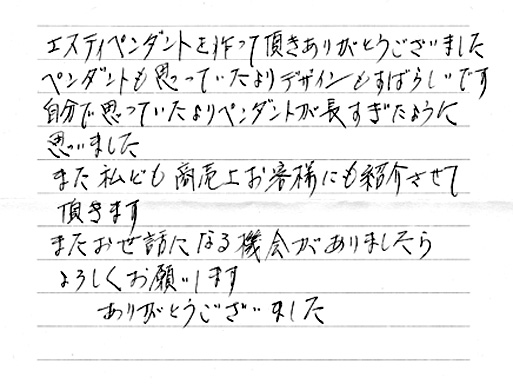 エスティペンダントを作って頂きありがとうございました
ペンダントも思っていたよりデザインもすばらしいです
自分で思っていたよりペンダントが長すぎたように
思いました
また私ども商売上お客様にも紹介させて
頂きます
またお世話になる機会がありましたら
よろしくお願いします
ありがとうございました